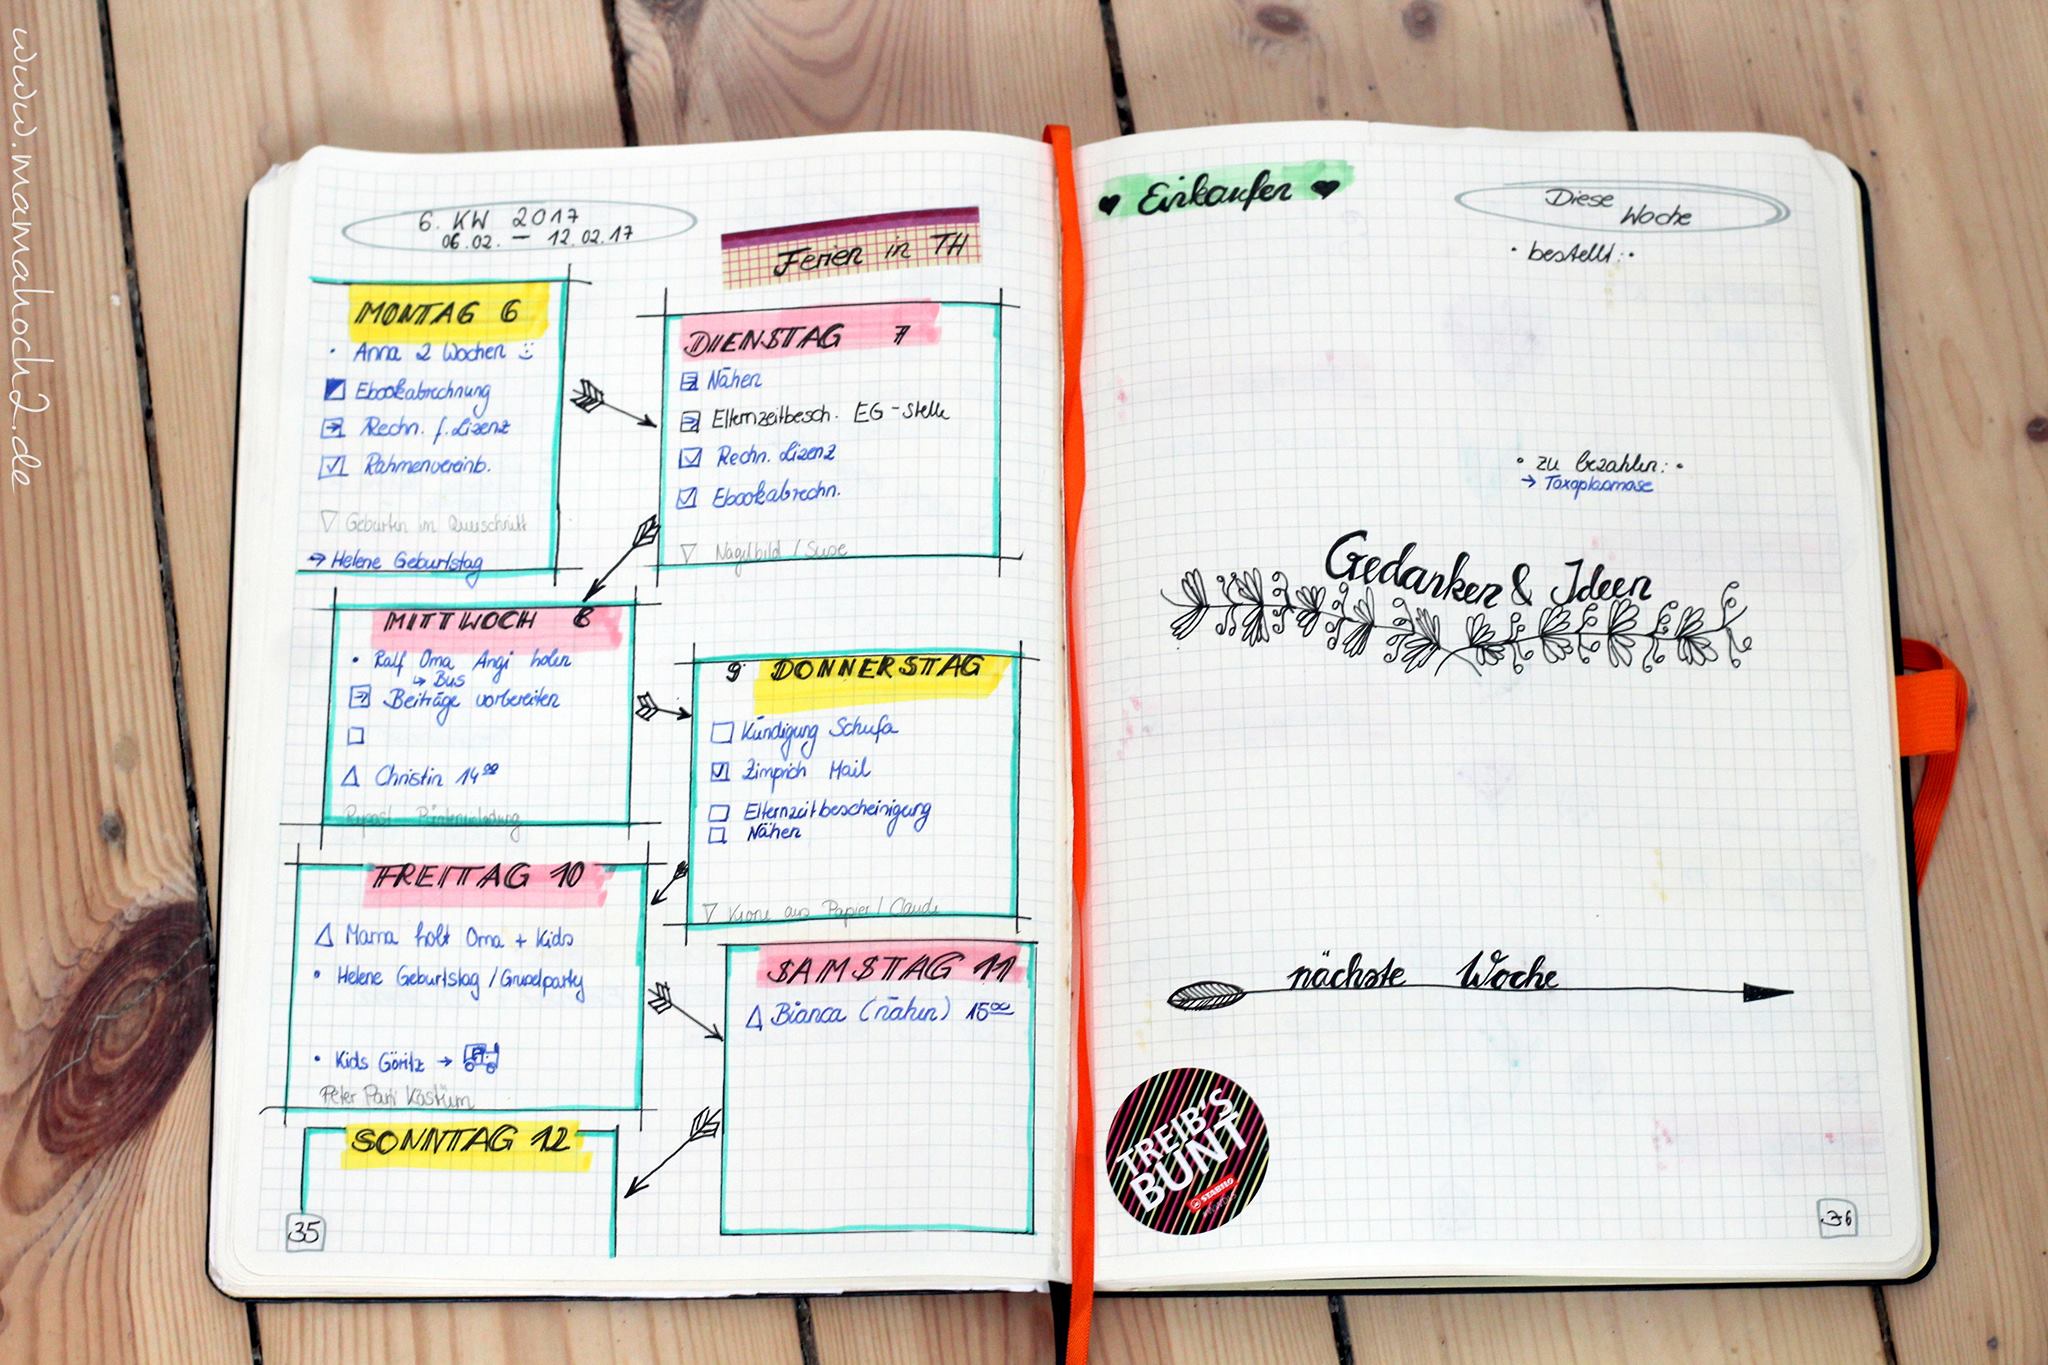 www.mamahoch2.de
6. KW 2017
06.02. — 12.02.17
Ferien in TH
MONTAG 6
· Anna 2 Wochen :)
Ebookabrechnung
→ Rechn. f. Lizenz
✓ Rahmenvereinb.
▽ Geburten im Querschnitt
→ Helene Geburtstag
DIENSTAG 7
Nähen
Elternzeitbesch. EG-Stelle
✓ Rechn. Lizenz
✓ Ebookabrechn.
▽ Nagelbild / Suse
MITTWOCH 8
• Ralf Oma Angi holen
↳ Bus
→ Beiträge vorbereiten
△ Christin 14⁰⁰
9 DONNERSTAG
Kündigung Schufa
✓ Zimprich Mail
Elternzeitbescheinigung
Nähen
▽ Krone aus Papier / Claudi
FREITAG 10
△ Mama holt Oma + Kids
• Helene Geburtstag / Gruselparty
• Kids Göritz →
Peter Pan Kostüm
SAMSTAG 11
△ Bianca (nähen) 15⁰⁰
SONNTAG 12
35
♥ Einkaufen ♥
Diese
Woche
• bestellt: •
• zu bezahlen: •
→ Toxoplasmose
Gedanken & Ideen
nächste Woche
TREIB'S
BUNT
STABILO
36